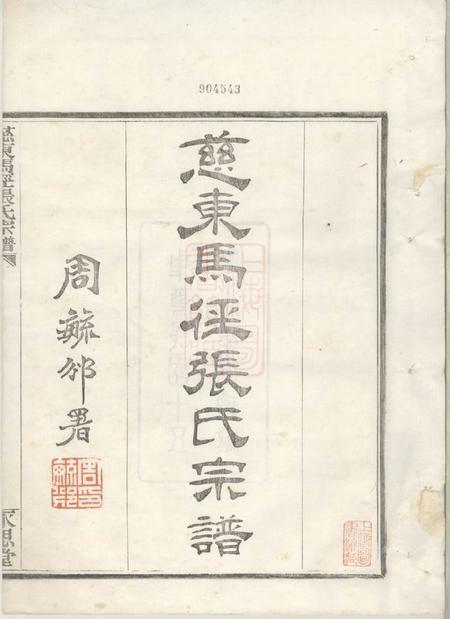 904543
慈東馬徑張氏宗譜
周毓邠署
慈東馬徑張氏宗譜
永思堂